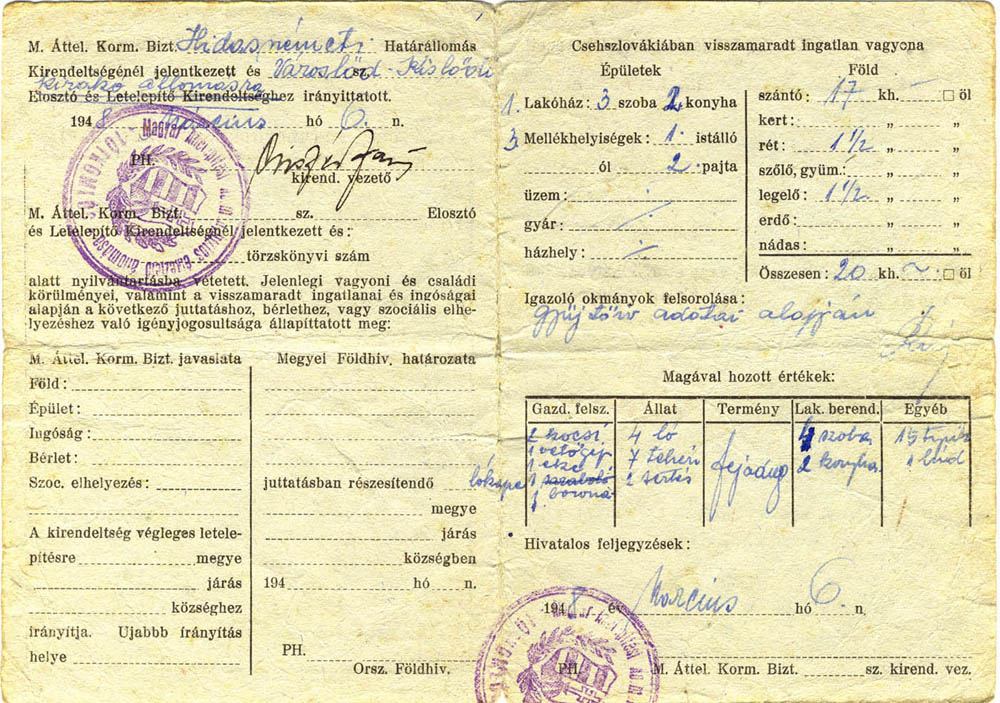 M. Áttel. Korm. Bizt. Hidasnémeti Határállomás
Kirendeltségénél jelentkezett és Városlőd-Kislőd sz.
kirakó állomásra
Elosztó és Letelepítő Kirendeltséghez irányíttatott.
1948 március hó 6. n.
PH.
kirend. vezető
M. Áttel. Korm. Bizt. sz. Elosztó
és Letelepítő Kirendeltségnél jelentkezett és:
törzskönyvi szám
alatt nyilvántartásba vétetett. Jelenlegi vagyoni és családi
körülményei, valamint a visszamaradt ingatlanai és ingóságai
alapján a következő juttatáshoz, bérlethez, vagy szociális elhe-
lyezéshez való igényjogosultsága állapíttatott meg:
M. Áttel. Korm. Bizt. javaslata
Föld:
Épület:
Ingóság:
Bérlet:
Szoc. elhelyezés:
A kirendeltség végleges letele-
pítésre megye
járás
községhez
irányítja. Ujabbb irányítás
helye
Megyei Földhiv. határozata
juttatásban részesítendő
megye
járás
községben
194 hó n.
PH.
Orsz. Földhiv.
Csehszlovákiában visszamaradt ingatlan vagyona
Épületek
1. Lakóház: 3 szoba 2 konyha
3. Mellékhelyiségek: 1. istálló
ól 2. pajta
üzem:
gyár:
házhely:
Föld
szántó: 17 kh. □ öl
kert: „ „
rét: 1 1/2 „ „
szőlő, gyüm.: „ „
legelő: 1 1/2 „ „
erdő: „ „
nádas: „ „
Összesen: 20 kh. □ öl
Igazoló okmányok felsorolása:
gyüjtőív adatai alapján
Magával hozott értékek:
Gazd. felsz. Állat Termény Lak. berend. Egyéb
2 kocsi 4 ló fejadag 4 szoba 15
1 vetőgép 7 tehén 2 konyha 1
1 eke 2 sertés
lókapa 1
1 borona
Hivatalos feljegyzések:
1948 év március hó 6. n.
PH. M. Áttel. Korm. Bizt. sz. kirend. vez.